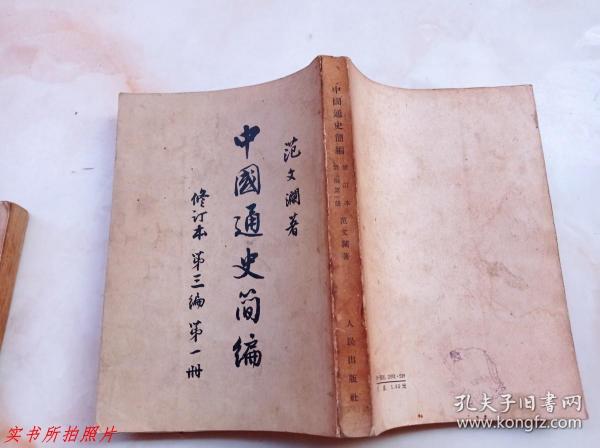 范文瀾著
中國通史简編
修订本 第三編 第一册
中國通史簡編
修訂本
范文瀾著
人民出版社
实书所拍照片
孔夫子旧书网
www.kongfz.com